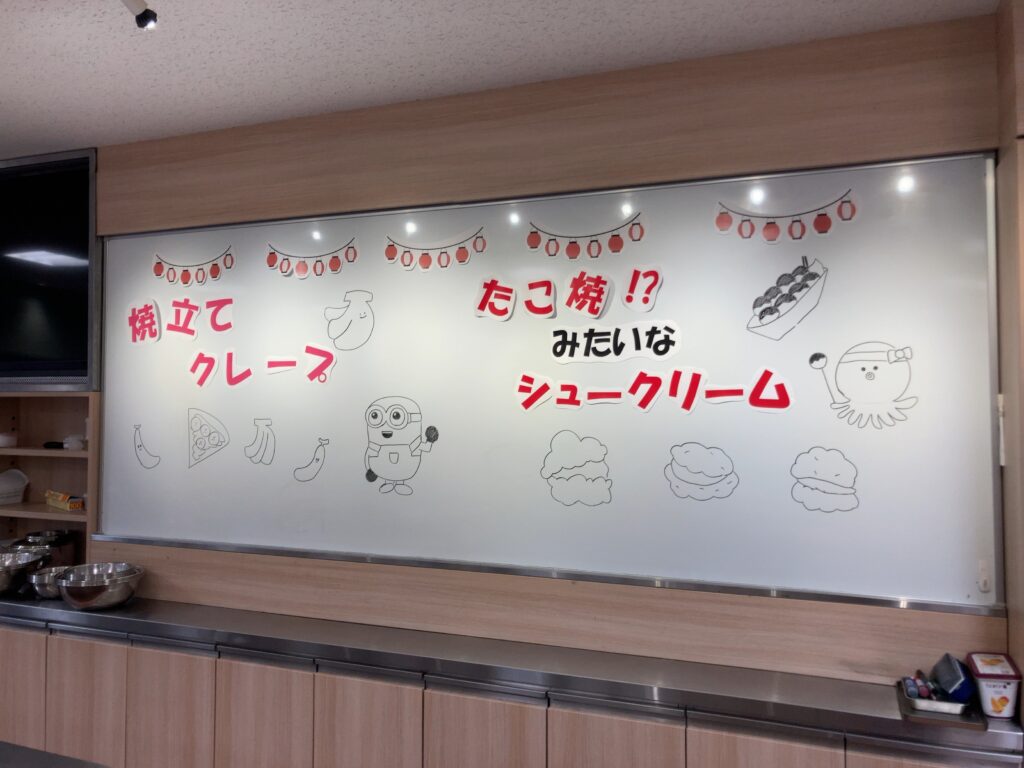 焼立て
クレープ
たこ焼!?
みたいな
シュークリーム